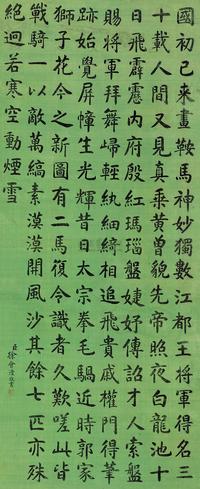 國初已來畫鞍馬神妙獨數江都王將軍得名三
十載人間又見真乘黃曾貌先帝照夜白龍池十
日飛霹靂內府殷紅瑪瑙盤婕妤傳詔才人索盤
賜將軍拜舞歸輕紈細綺相追飛貴戚權門得筆
跡始覺屏幛生光輝昔日太宗拳毛騧近時郭家
獅子花今之新圖有二馬復令識者久歎嗟此皆
戰騎一以敵萬縞素漠漠開風沙其餘七匹亦殊
絕迥若寒空動煙雪
臣徐會灃敬書